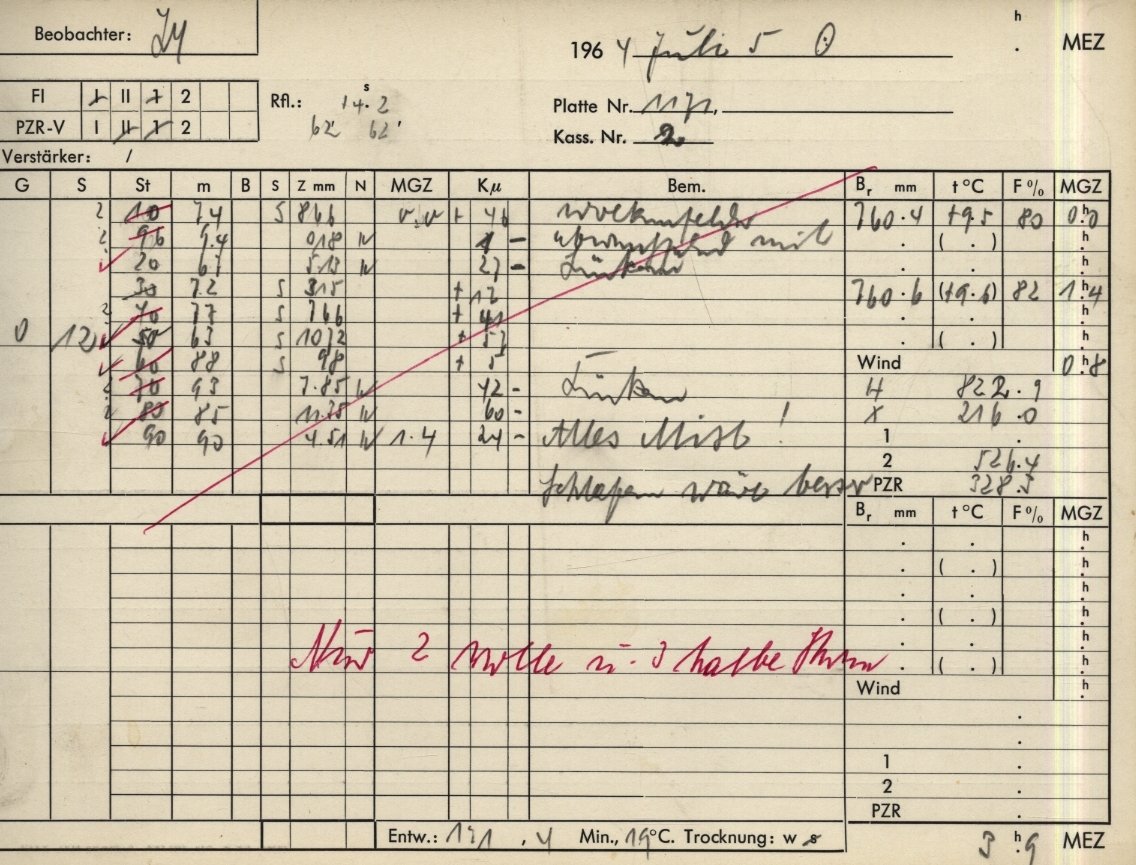 h
Beobachter:
1964 Juli 5 . MEZ
FI I II 1 2
PZR-V I II 1 2
Rfl.: 14.2 s
62' 62'
Platte Nr. 1171,
Kass. Nr. 2.
Verstärker: /
G S St m B S Z mm N MGZ Kμ Bem. Br mm t °C F % MGZ
2 10 74 S 866 v.v + 46 Wolkenfelder 760.4 +9.5 80 0.0 h
96 9.4 018 N 1 - abwechselnd mit . ( . ) h
20 67 513 N 27 - Lücken . . h
30 72 S 315 + 12 760.6 (+9.6) 82 1.4 h
2 40 77 S 766 + 41 . . h
0 12 50 63 S 1072 + 57 . ( . ) h
60 88 S 98 + 5 Wind 0.8 h
70 93 7.85 N 42 - Lücken H 822.9
80 85 11.35 N 60 - X 216.0
90 90 4.51 N 1.4 24 - Alles Mist! 1 .
2 526.4
Schlafen wäre besser PZR 328.3
Br mm t °C F % MGZ
. . h
. ( . ) h
. . h
. ( . ) h
. . h
Nur 2 volle u. 3 halbe . ( . ) h
Wind h
.
.
1 .
2 .
PZR .
Entw.: 171, 4 Min., 19°C. Trocknung: w s
3 h . 9 MEZ